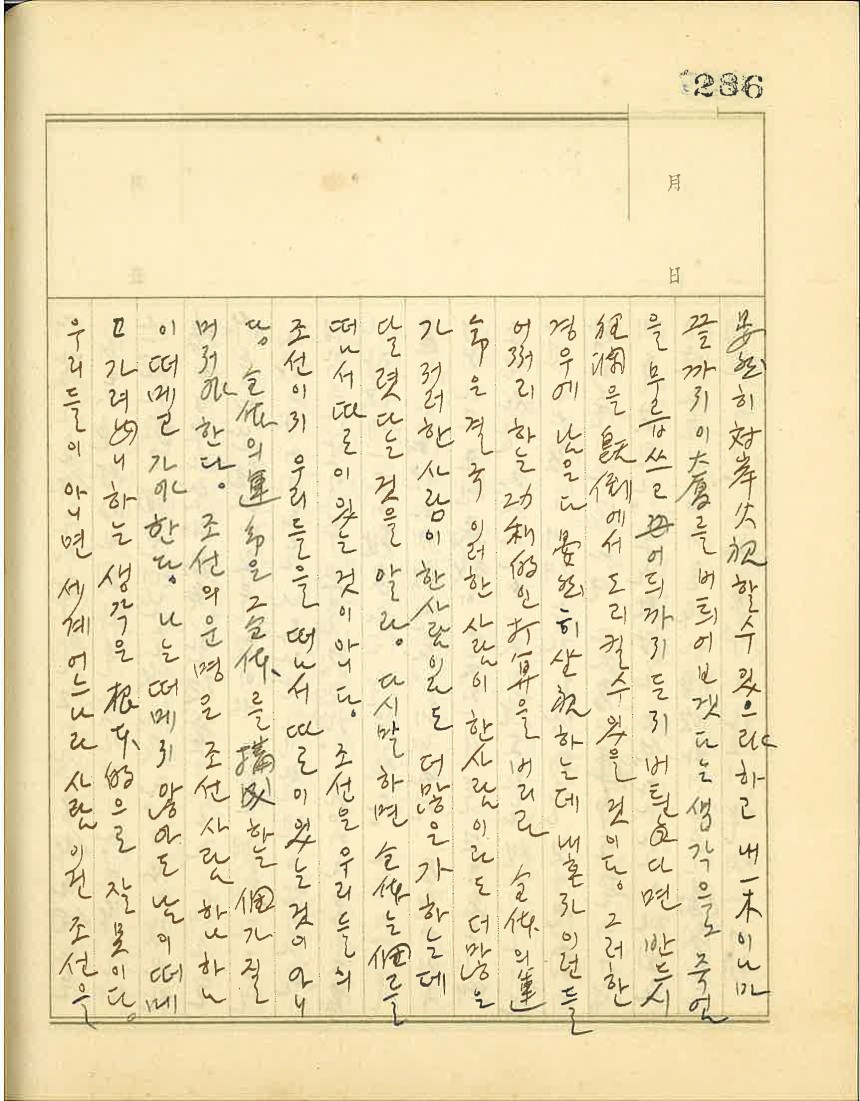 286
月 日
晏然히 対岸火視할수 있으랴하고 내 一木이나마
끝까지 이 大廈를 버티어보겟다는 생각으로 죽엄
을 무릅쓰고 어듸까지든지 버틘다면 반드시
狂瀾을 旣倒에서 도리킬수 있을 것이다. 그러한
경우에 남은 다 晏然히 坐視하는데 내혼자 이런들
어쩌리 하는 功利的인 打算을 버리라 全体의 運
命은 결국 이러한 사람이 한사람이라도 더많은
가 저러한 사람이 한사람이라도 더많은가 하는데
달렷다는 것을 알라. 다시말하면 全体는 個를
떠나서 따로이 있는 것이 아니다. 조선은 우리들의
조선이지 우리들을 떠나서 따로이 있는것이 아니
다. 全体의 運命은 그 全体를 構成하는 個가 질
머저야 한다. 조선의 운명은 조선사람 하나하나
이 떠메고 가야한다. 나는 떠메지 않아도 남이 떠메
고 가려니 하는 생각은 根本的으로 잘못이다.
우리들이 아니면 세계 어느나라 사람이 조선을